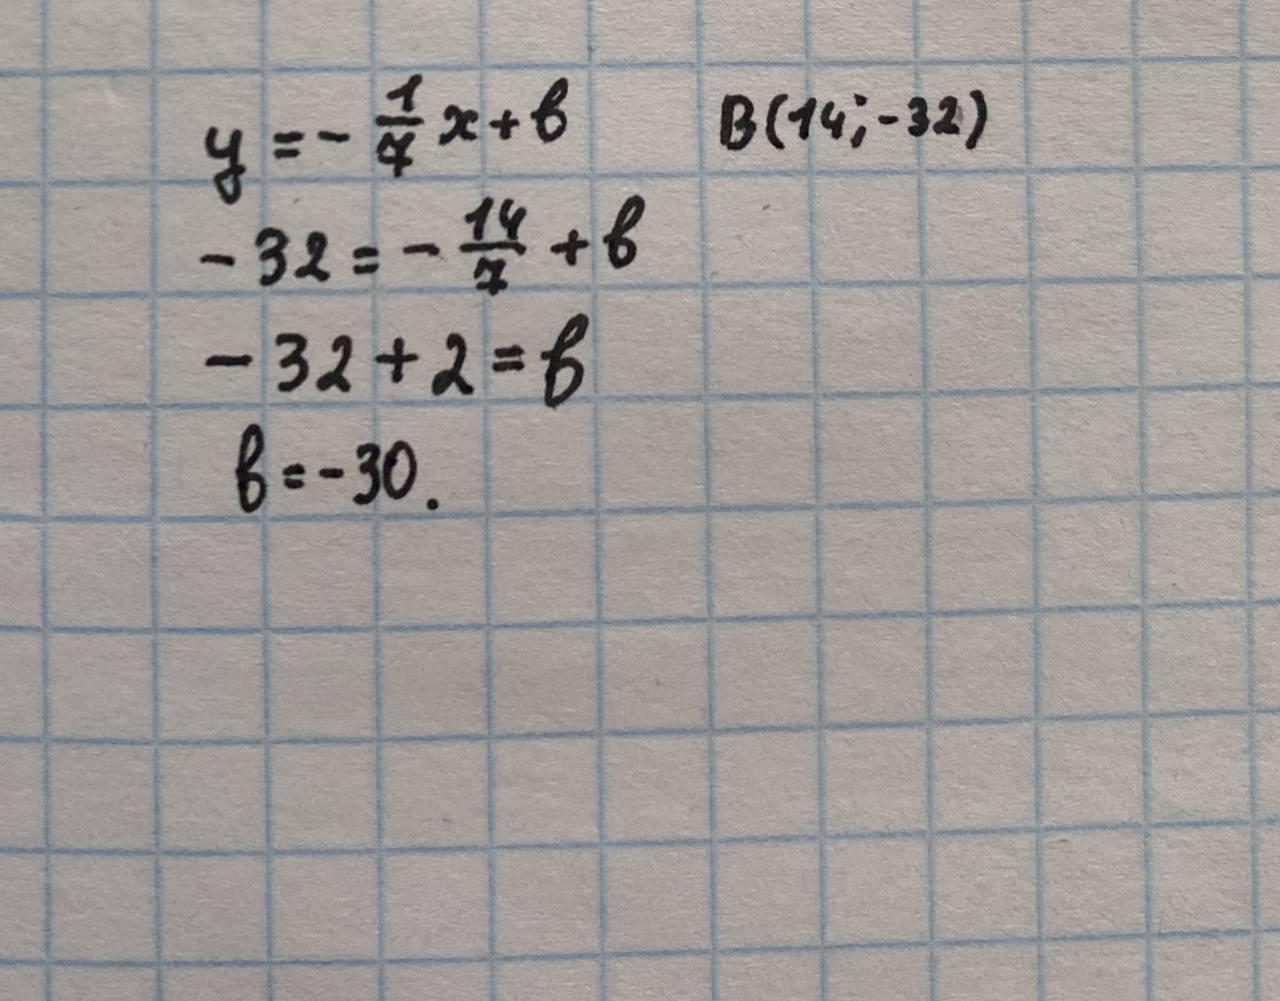 y = - 1/7 x + b B(14; -32)
-32 = - 14/7 + b
-32 + 2 = b
b = -30.